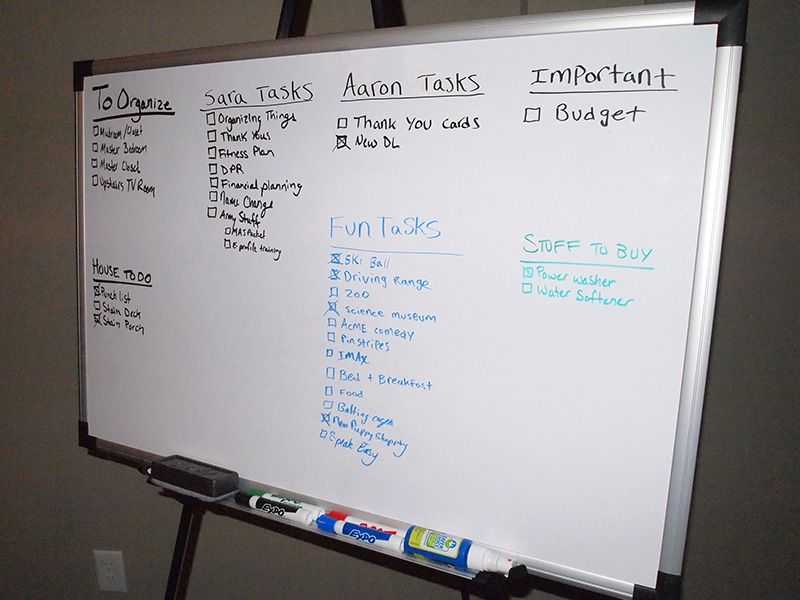 To Organize
Mudroom/Closet
Master Bedroom
Master Closet
Upstairs TV Room
HOUSE TO DO
Punch list
Stain Deck
Stain Porch
Sara Tasks
Organizing Things
Thank Yous
Fitness Plan
DPR
Financial planning
Name Change
Army Stuff
MAS Packet
E-profile training
Aaron Tasks
Thank You cards
New DL
Fun Tasks
Ski Ball
Driving Range
Zoo
science museum
AcME comedy
Pinstripes
IMAX
Bed + Breakfast
Food
Batting cages
New Puppy Shopping
Speak Easy
Important
Budget
STUFF TO BUY
Power washer
Water Softener
EXPO
EXPO